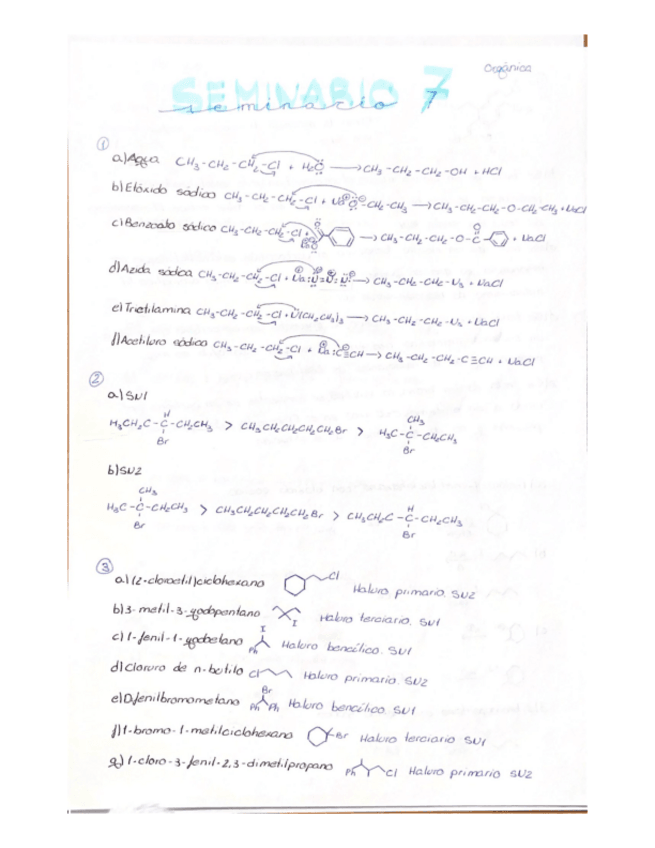 Orgánica
SEMINARIO 7
seminario 7
①
a) Agua CH₃-CH₂-CH₂-Cl + H₂O ⟶ CH₃-CH₂-CH₂-OH + HCl
b) Etóxido sódico CH₃-CH₂-CH₂-Cl + Na⊕ O⊖-CH₂-CH₃ ⟶ CH₃-CH₂-CH₂-O-CH₂CH₃ + NaCl
c) Benzoato sódico CH₃-CH₂-CH₂-Cl + ⟶ CH₃-CH₂-CH₂-O-C + NaCl
d) Azida sódica CH₃-CH₂-CH₂-Cl + Na N=N=N ⟶ CH₃-CH₂-CH₂-N₃ + NaCl
e) Trietilamina CH₃-CH₂-CH₂-Cl + N(CH₂CH₃)₃ ⟶ CH₃-CH₂-CH₂-N₃ + NaCl
f) Acetiluro sódico CH₃-CH₂-CH₂-Cl + Na :C≡CH ⟶ CH₃-CH₂-CH₂-C≡CH + NaCl
②
a) SN1
H
H₃CH₂C-C-CH₂CH₃ > CH₃CH₂CH₂CH₂CH₂Br > H₃C-C-CH₂CH₃
CH₃
Br
Br
b) SN2
CH₃
H₃C-C-CH₂CH₃ > CH₃CH₂CH₂CH₂CH₂Br > CH₃CH₂C-C-CH₂CH₃
H
Br
Br
③
a) (2-cloroetil)ciclohexano Cl Haluro primario. SN2
b) 3-metil-3-yodopentano I Haluro terciario. SN1
c) 1-fenil-1-yodoetano I Ph Haluro bencílico. SN1
d) Cloruro de n-butilo Cl Haluro primario. SN2
e) Difenilbromometano Br Ph Ph Haluro bencílico. SN1
f) 1-bromo-1-metilciclohexano Br Haluro terciario SN1
g) 1-cloro-3-fenil-2,3-dimetilpropano Ph Cl Haluro primario SN2